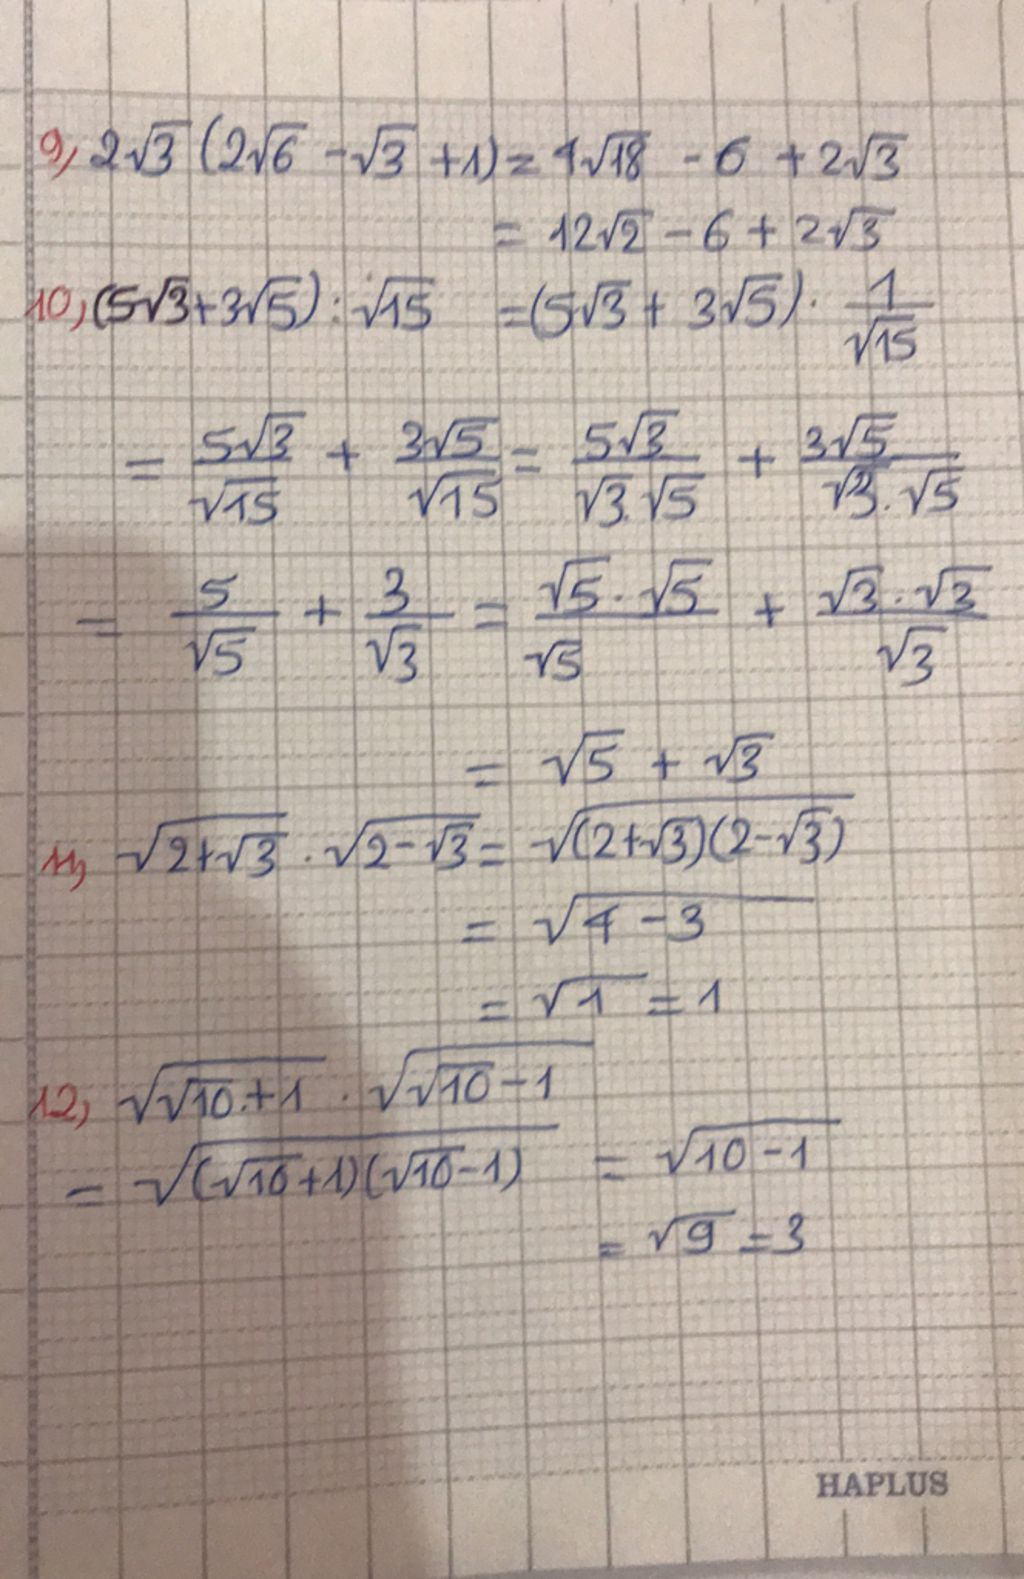 9, 2√3 (2√6 - √3 + 1) = 4√18 - 6 + 2√3
= 12√2 - 6 + 2√3
10, (5√3 + 3√5) : √15 = (5√3 + 3√5) · 1/√15
= 5√3/√15 + 3√5/√15 = 5√3/(√3.√5) + 3√5/(√3.√5)
= 5/√5 + 3/√3 = (√5.√5)/√5 + (√3.√3)/√3
= √5 + √3
11, √(2+√3) . √(2-√3) = √((2+√3)(2-√3))
= √(4-3)
= √1 = 1
12, √(√10+1) . √(√10-1)
= √((√10+1)(√10-1)) = √(10-1)
= √9 = 3
HAPLUS